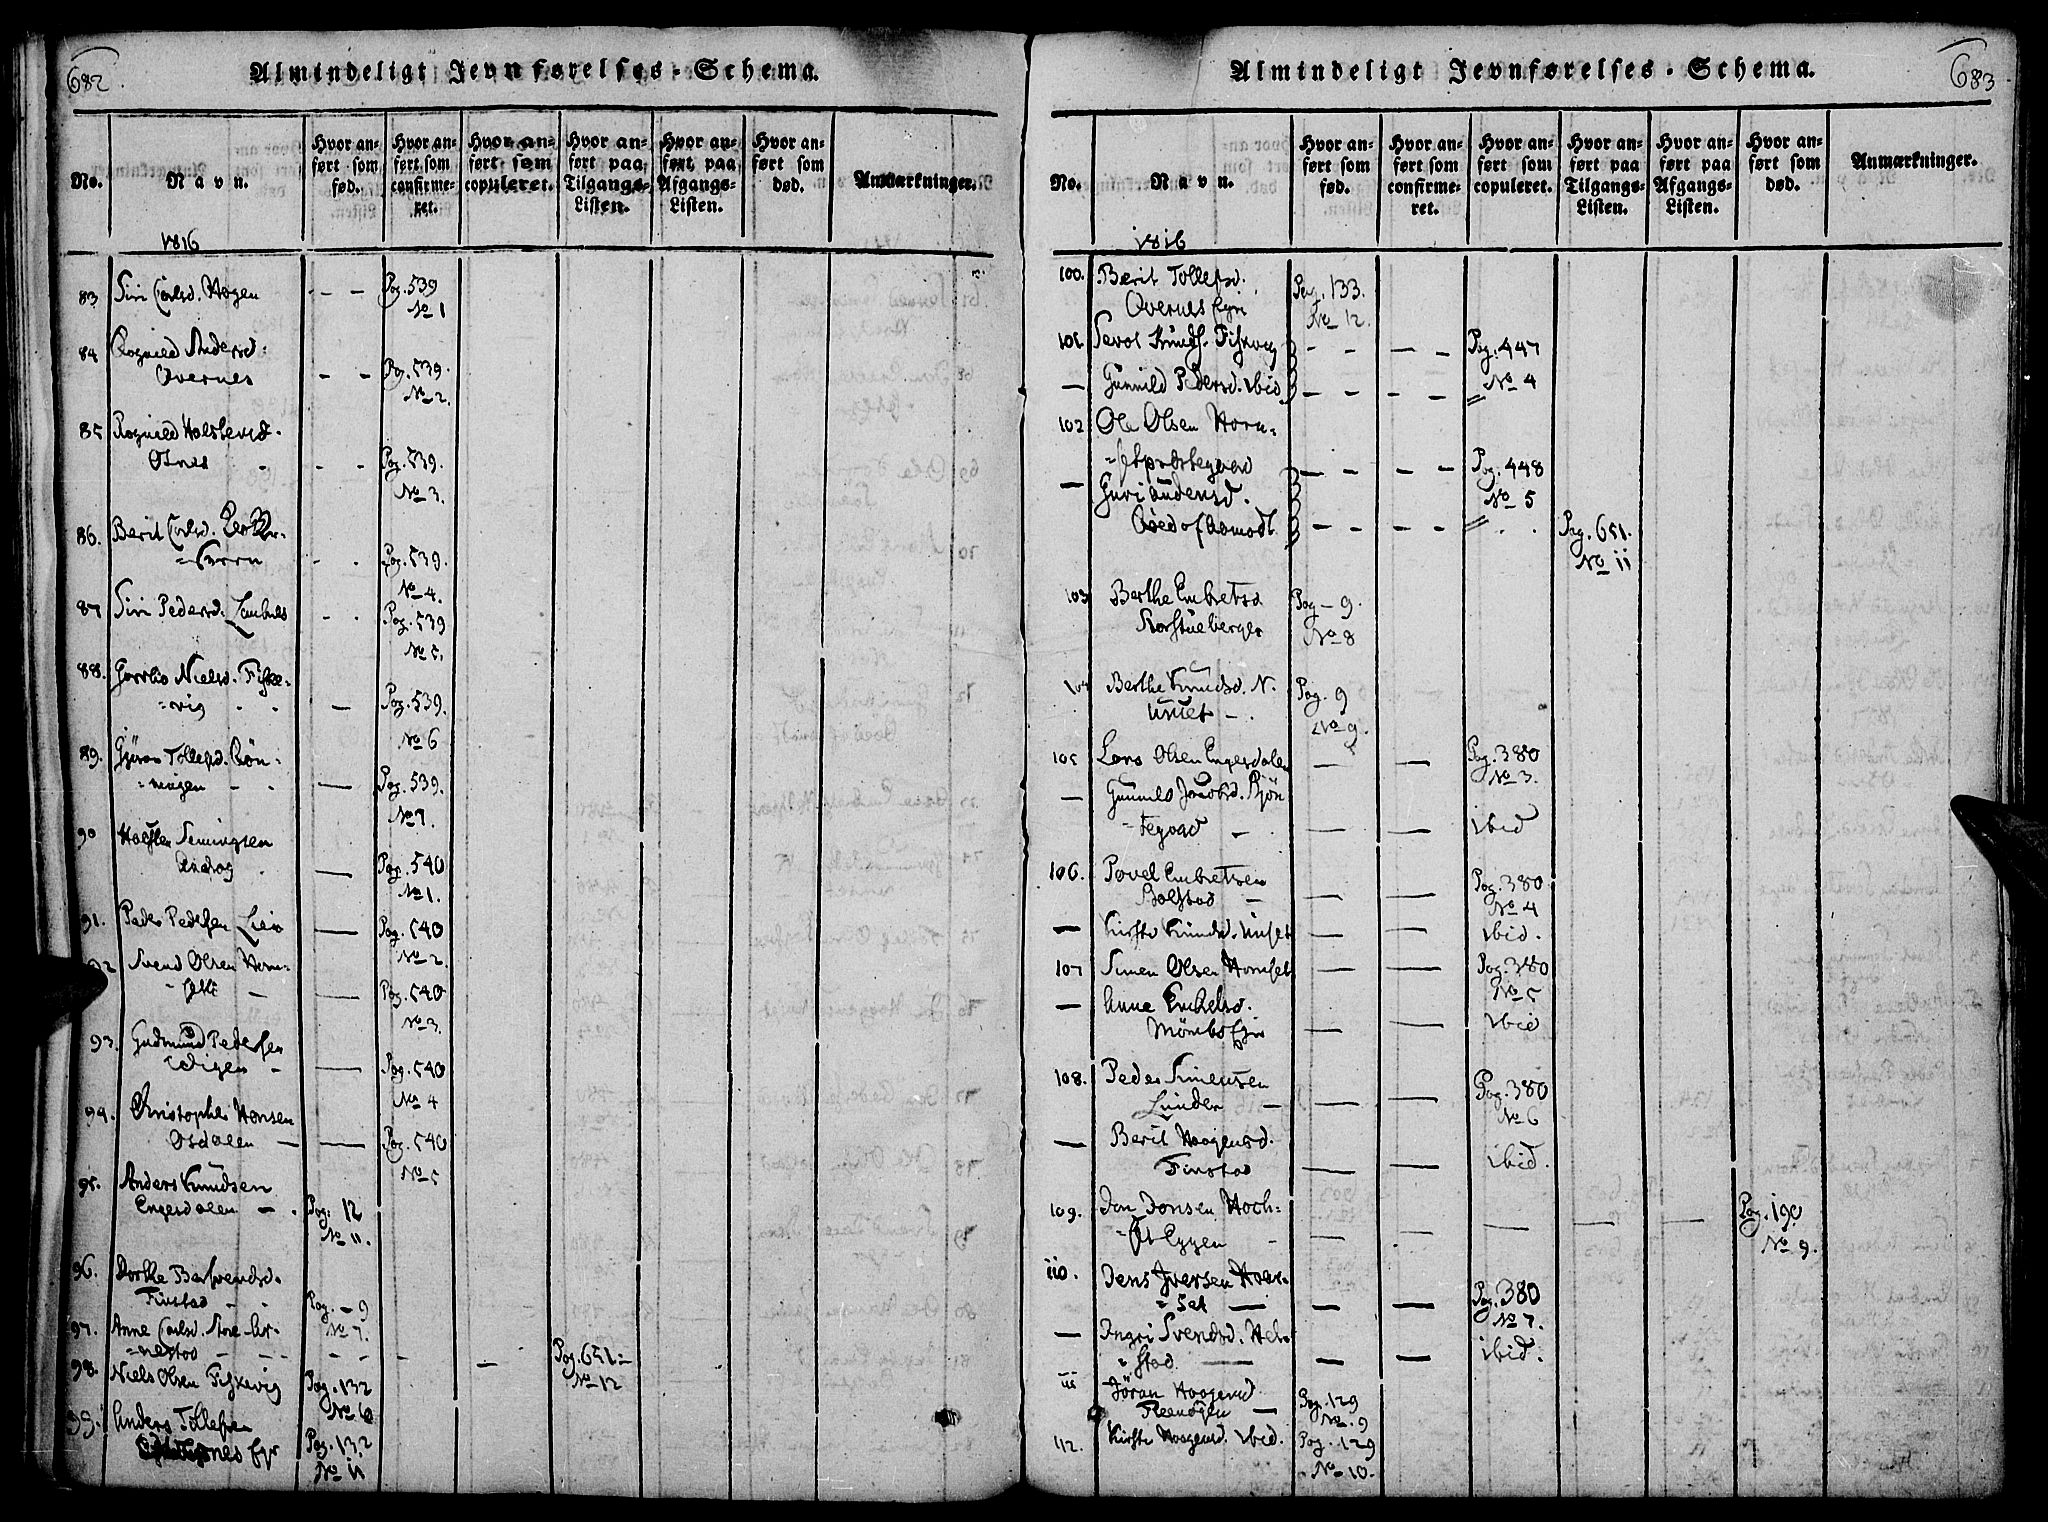 682
Almindeligt Jevnførelses-Schema.
No.
Navn.
Hvor anført som fød.
Hvor anført som confirmeret.
Hvor anført som copuleret.
Hvor anført paa Tilgangs-Listen.
Hvor anført paa Afgangs-Listen.
Hvor anført som død.
Anmærkninger.
1816
83 Siri Carlsd. Hogen - - Pag. 539
No 1
84 Rognild Andersd.
Overnes - - Pag. 539.
No 2.
85 Rognild Halstensd.
Osnes - - Pag. 539.
No 3.
86. Berit Carlsd.
- - Pag. 539.
No 4.
87 Siri Pedersd. - - Pag. 539
No 5.
88. Nielsd. Fiske=
=vig - Pag. 539.
No 6
89. Gjöran Tollefsd. Rön=
=ningen - Pag. 539.
No 7.
90 Halsten Semingsen
- Pag. 540
No 1.
91. Peder Pedersen Lien - Pag. 540
No 2.
92 Svend Olsen
- Pag. 540
No 3.
93. Gudmund Pedersen
- Pag. 540
No 4
94. Christopher Hansen
Osdalen - Pag. 540
No 5
95. Anders Knudsen
Engerdalen - Pag. 12
No 11.
96. Dorthe Bersvendsd.
Finstad - Pag. - 9
No 7.
97. Anne Carlsd. Store Ar=
=nestad - - - - - Pag. 651.
No 12
98. Niels Olsen Fiskevig Pag. 132
No 10
99. Anders Tollefsen
Pag. 132
No 11
683
Almindeligt Jevnførelses-Schema.
No.
Navn.
Hvor anført som fød.
Hvor anført som confirmeret.
Hvor anført som copuleret.
Hvor anført paa Tilgangs-Listen.
Hvor anført paa Afgangs-Listen.
Hvor anført som død.
Anmærkninger.
1816
100. Berit Tollefsd.
Overnes Pag. 133.
No 12.
101. Knuds. Fiskevig - - - - Pag. 447
No 4
— Gunnild Pedersd. ibid - - - - =
102 Ole Olsen
- - - - Pag. 448
No 5
— Guri
- - - - = Pag. 651.
No 11
103 Berthe Embretsd.
Korstueberget Pag - 9.
No 8
104 Berthe Knudsd. N.
Unset - Pag. 9
No 9.
105 Lars Olsen Engerdalen — — Pag. 380
No 3.
— Gunnild Jacobsd.
— — ibid
106. Povel Embretsen
Bolstad — — Pag. 380
No 4
— Kirsti Knudsd. Unset — — ibid.
107 Simen Olsen Hornset — — Pag. 380
No 5
— Anne Enkelsd.
— — ibid
108. Peder Simensen
Lunden — — Pag. 380
No 6
— Berit Haagensd.
Finstad — — ibid.
109. Jon Jonsen Hoch=
=st Eggen — — — — — Pag. 190
No 9.
110. Jens Iversen
=set — — Pag. 380
No 7.
— Ingri Svendsd. Hel=
=stad — — ibid.
111 Jöran Haagensd.
Pag. 129
No. 9
112. Kirsti Haagensd. ibid. Pag. 129
No 10.